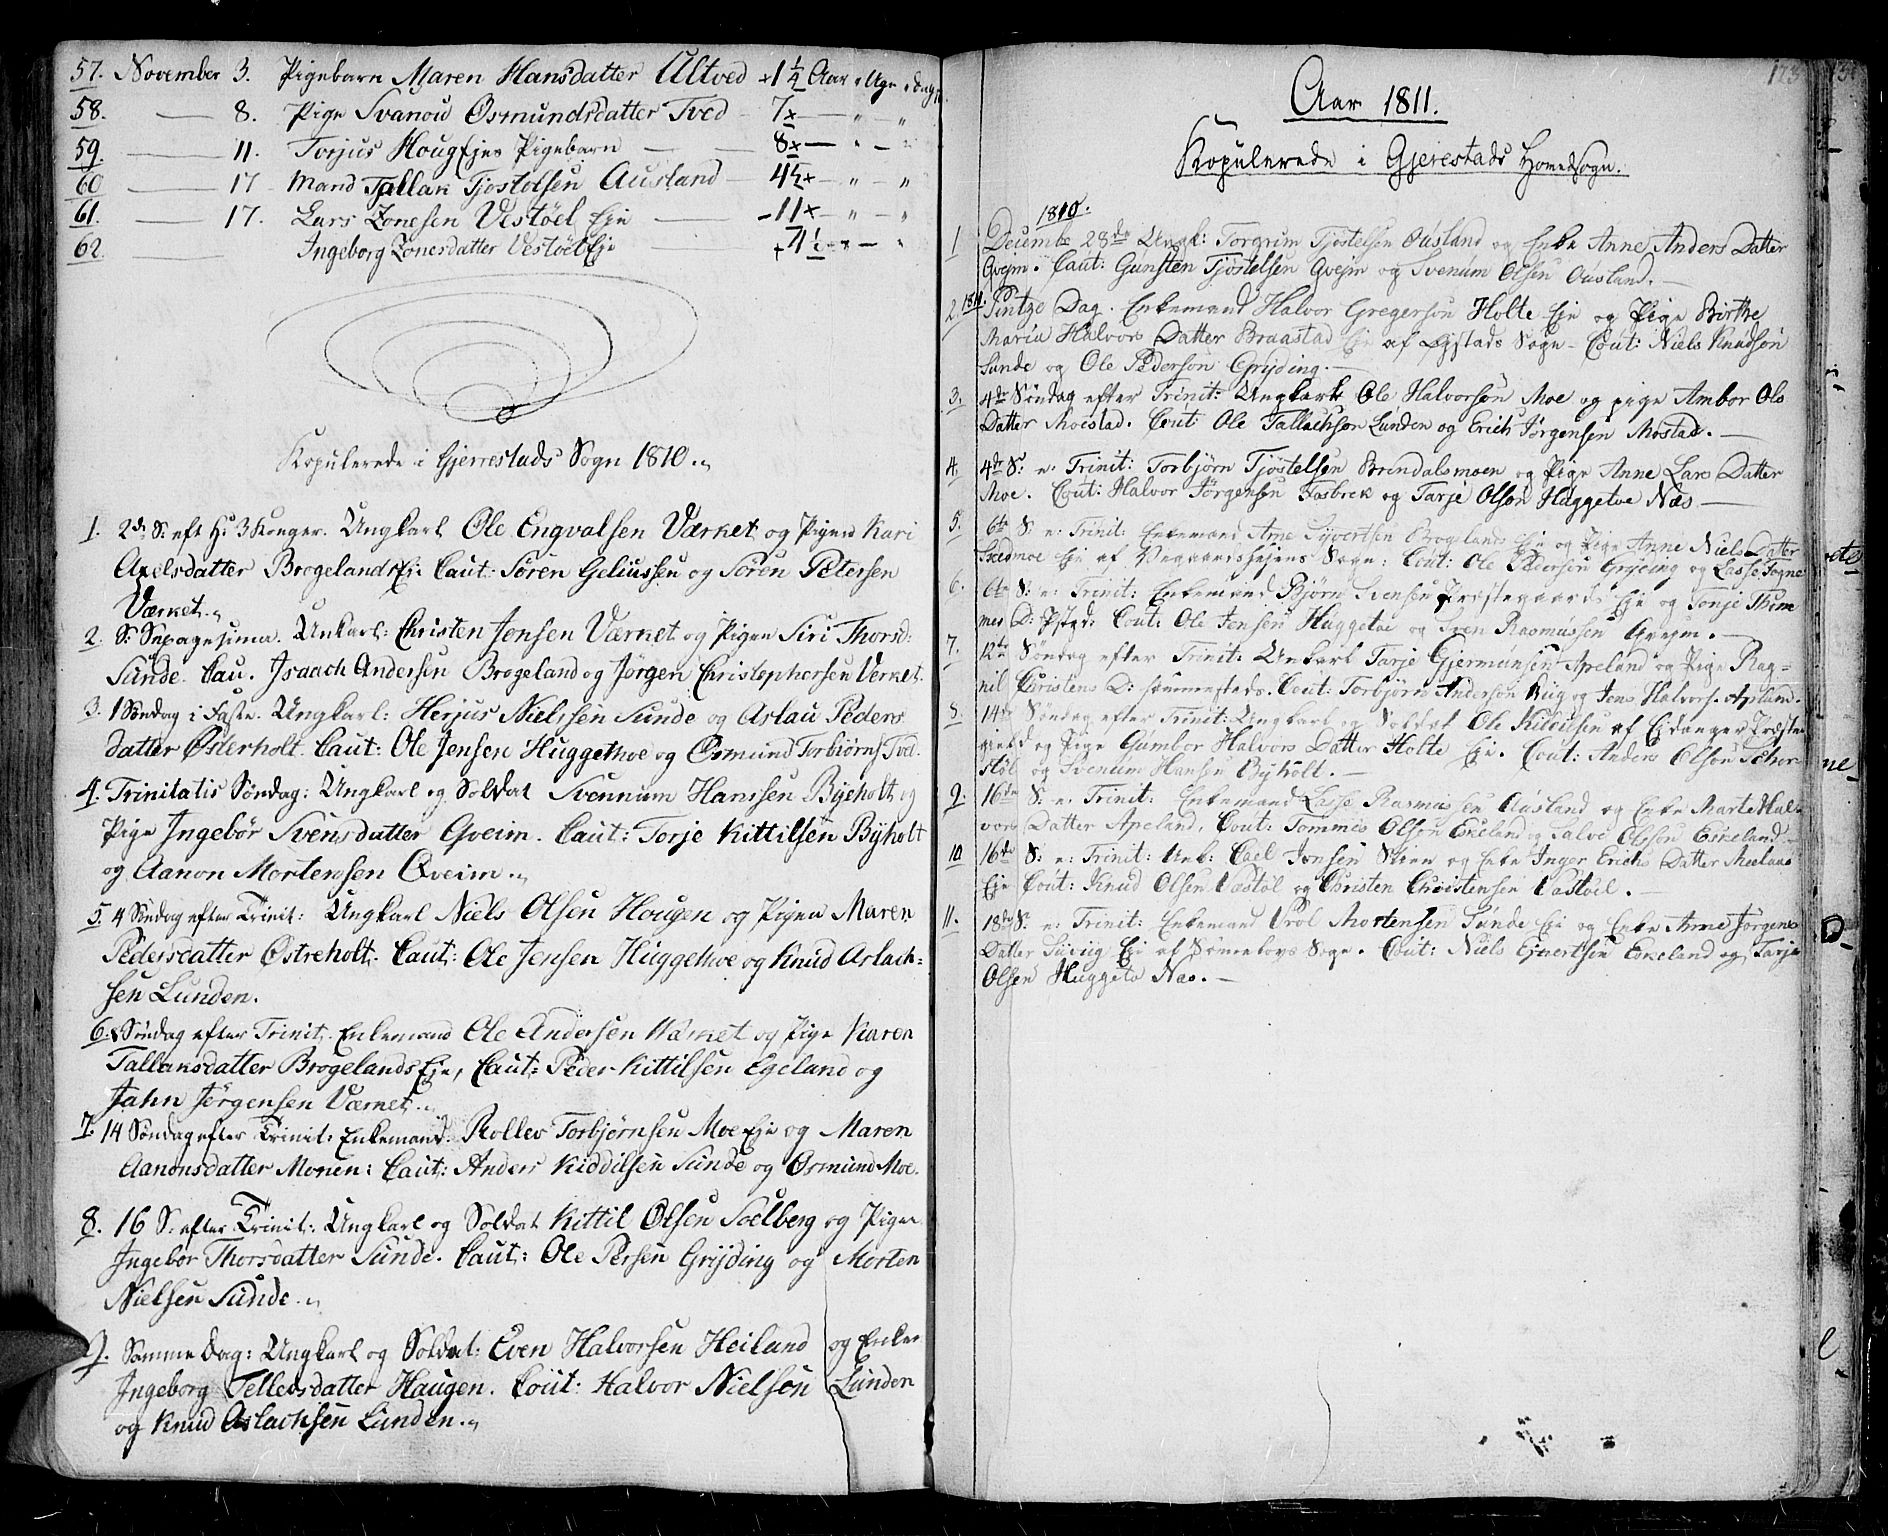 57. November 3. Pigebarn Maren Hansdatter Ultved +1 1/4 Aar " Uge " dage
58. — 8. Pige Svanou Osmundsdatter Tved — 7x — " — "
59. — 11. Torjus Hougejes Pigebarn — 8x — " — "
60 — 17 - Mand Tallak Tjostolsen Ausland — 45x — " — "
61. — 17. Lars Zonesen Vestøel Eje — -11x — " — "
62. — Ingeborg Zonesdatter Vestøel Eje —
Kopulerede i Gjerrestads Sogn 1810.
1. 2d S: eft H: 3 Konger. Ungkarl Ole Engvalsen Værket og Pigen Kari
Axelsdatter Brogelands Eje Caut: Søren Geliussen og Søren Petersen
Værket.
2. S: Sepagesima. Unkarl: Christen Jensen Værket og Pigen Siri Thorsd:
Sunde. Cau. Isaach Andersen Brogeland og Jørgen Christophersen Verket.
3. 1 Søndag i Faste. Ungkarl: Herjus Nielssen Sunde og Aslau Peders
datter Østerholt. Caut: Ole Jensen Huggethoe og Osmund Torbiørns Tvet.
4. Trinitatis Søndag: Ungkarl og Soldat Svennum Hanssen Byeholt og
Pige Ingebør Svensdatter Qveim. Caut: Torje Kittilsen Byholt
og Aanon Mortensen Qveim.
5. 4 Søndag efter Trinit: Ungkarl Niels Olsen Hougen og Pigen Maren
Pedersdatter Østreholt. Caut: Ole Jensen Huggethoe og Knud Aslach-
sen Lunden.
6. Søndag efter Trinit. Enkemand Ole Andersen Værket og Pige Karen
Tallaksdatter Brogelands Eje, Caut: Peder Kittilsen Egeland og
Jahn Jørgensen Værket.
7. 14 Søndag efter Trinit: Enkemand Rollev Torbjørnsen Moe Eje og Maren
Aanonsdatter Monen: Caut: Anders Kiddilsen Sunde og Osmund Moe.
8. 16 S: efter Trinit: Ungkarl og Soldat Kittil Olsen Soelberg og Pigen
Ingebor Thorsdatter Sunde. Caut: Ole Persen Grijding og Morten
Nielsen Sunde.
9. Samme Dag: Ungkarl og Soldat: Even Halvorsen Heiland og Enken
Ingeborg Tellevsdatter Haugen. Cout: Halvor Nielsen Lunden
og Knud Aslachsen Lunden.
173
Aar 1811.
Kopulerede i Gjerestads Hovedsogn.
1810.
1 Decembr 28de Ungk: Torgrim Tjøstelsen Ousland og Enke Anne Anders Datter
Qvejm. Caut: Gunsten Tjøstelsen Qvejm og Svenum Olsen Ousland. —
2. 1811. Pintze Dag. Enkemand Halvor Gregersen Holte Eje og Pige Birthe
Maria Halvors Datter Braastad Eje af Sogn - Cout: Niels Knudsøn
Sunde og Ole Pedersøn Gryding. —
3. 4de Søndag efter Trinit: Ungkarl Ole Halvorsøn Moe og pige Ambor Ols
Datter Moestad. Cout Ole Tallachsøn Lunden og Erich Jørgensen Mostad. —
4. 4de S: e: Trinit: Torbjørn Tjøstelsen Brendalsmoen og Pige Anne Lars Datter
Moe. Cout: Halvor Jørgensen Fosbrek og Tarje Olsøn Huggetoe Næs —
5. 6te S: e: Trinit: Enkemand Arne Syvertsen Brogelands Eje og Pige Anne Niels Datter
Skedmoe Eje af Vegaardshejens Sogn: Cout: Ole Pedersøn Gryding og Lasse Togne
6. 6te S: e: Trinit: Enkemand Bjørn Svensen Præstegaards Eje og Tonje Thom
mes D: Cout: Ole Jensen Huggetoe og Sven Rasmussen Qvejm. —
7. 12te Søndag efter Trinit: Unkarl Tarje Gjermunsen Apeland og Pige Rag-
nil Christens D: Cout: Torbjørn Andersen Riig og Jens Halvors. Apland.
8. 14de Søndag efter Trinit: Ungkarl og Soldat Ole Kittilsen af Eidanger Præste
gield og Pige Gumbor Halvors Datter Holte Eje. Cout: Anders Olsøn Schor-
støl og Svenum Hansen Byholt. —
9. 16de S: e: Trinit: Enkemand Lasse Rasmusen Ousland og Enke Marte Hal-
vors Datter Apeland, Cout: Tommes Olsøn Eskeland og Salve Olssøn Eskeland —
10 16de S: e: Trinit: Unk: Cael Jonsen Stien og Enke Inger Erichs Datter Meeland
Eje Cout: Knud Olsen Vastøl og Christen Christensen Vastøel. —
11. 18de S: e: Trinit: Enkemand Mortensen Sunde Eje og Enke Anne Jørgens
Datter Eje af Sønneløvs Sogn. Cout: Niels Ejvertsen Eskeland og Tarje
Olsen Huggeto Næs. —